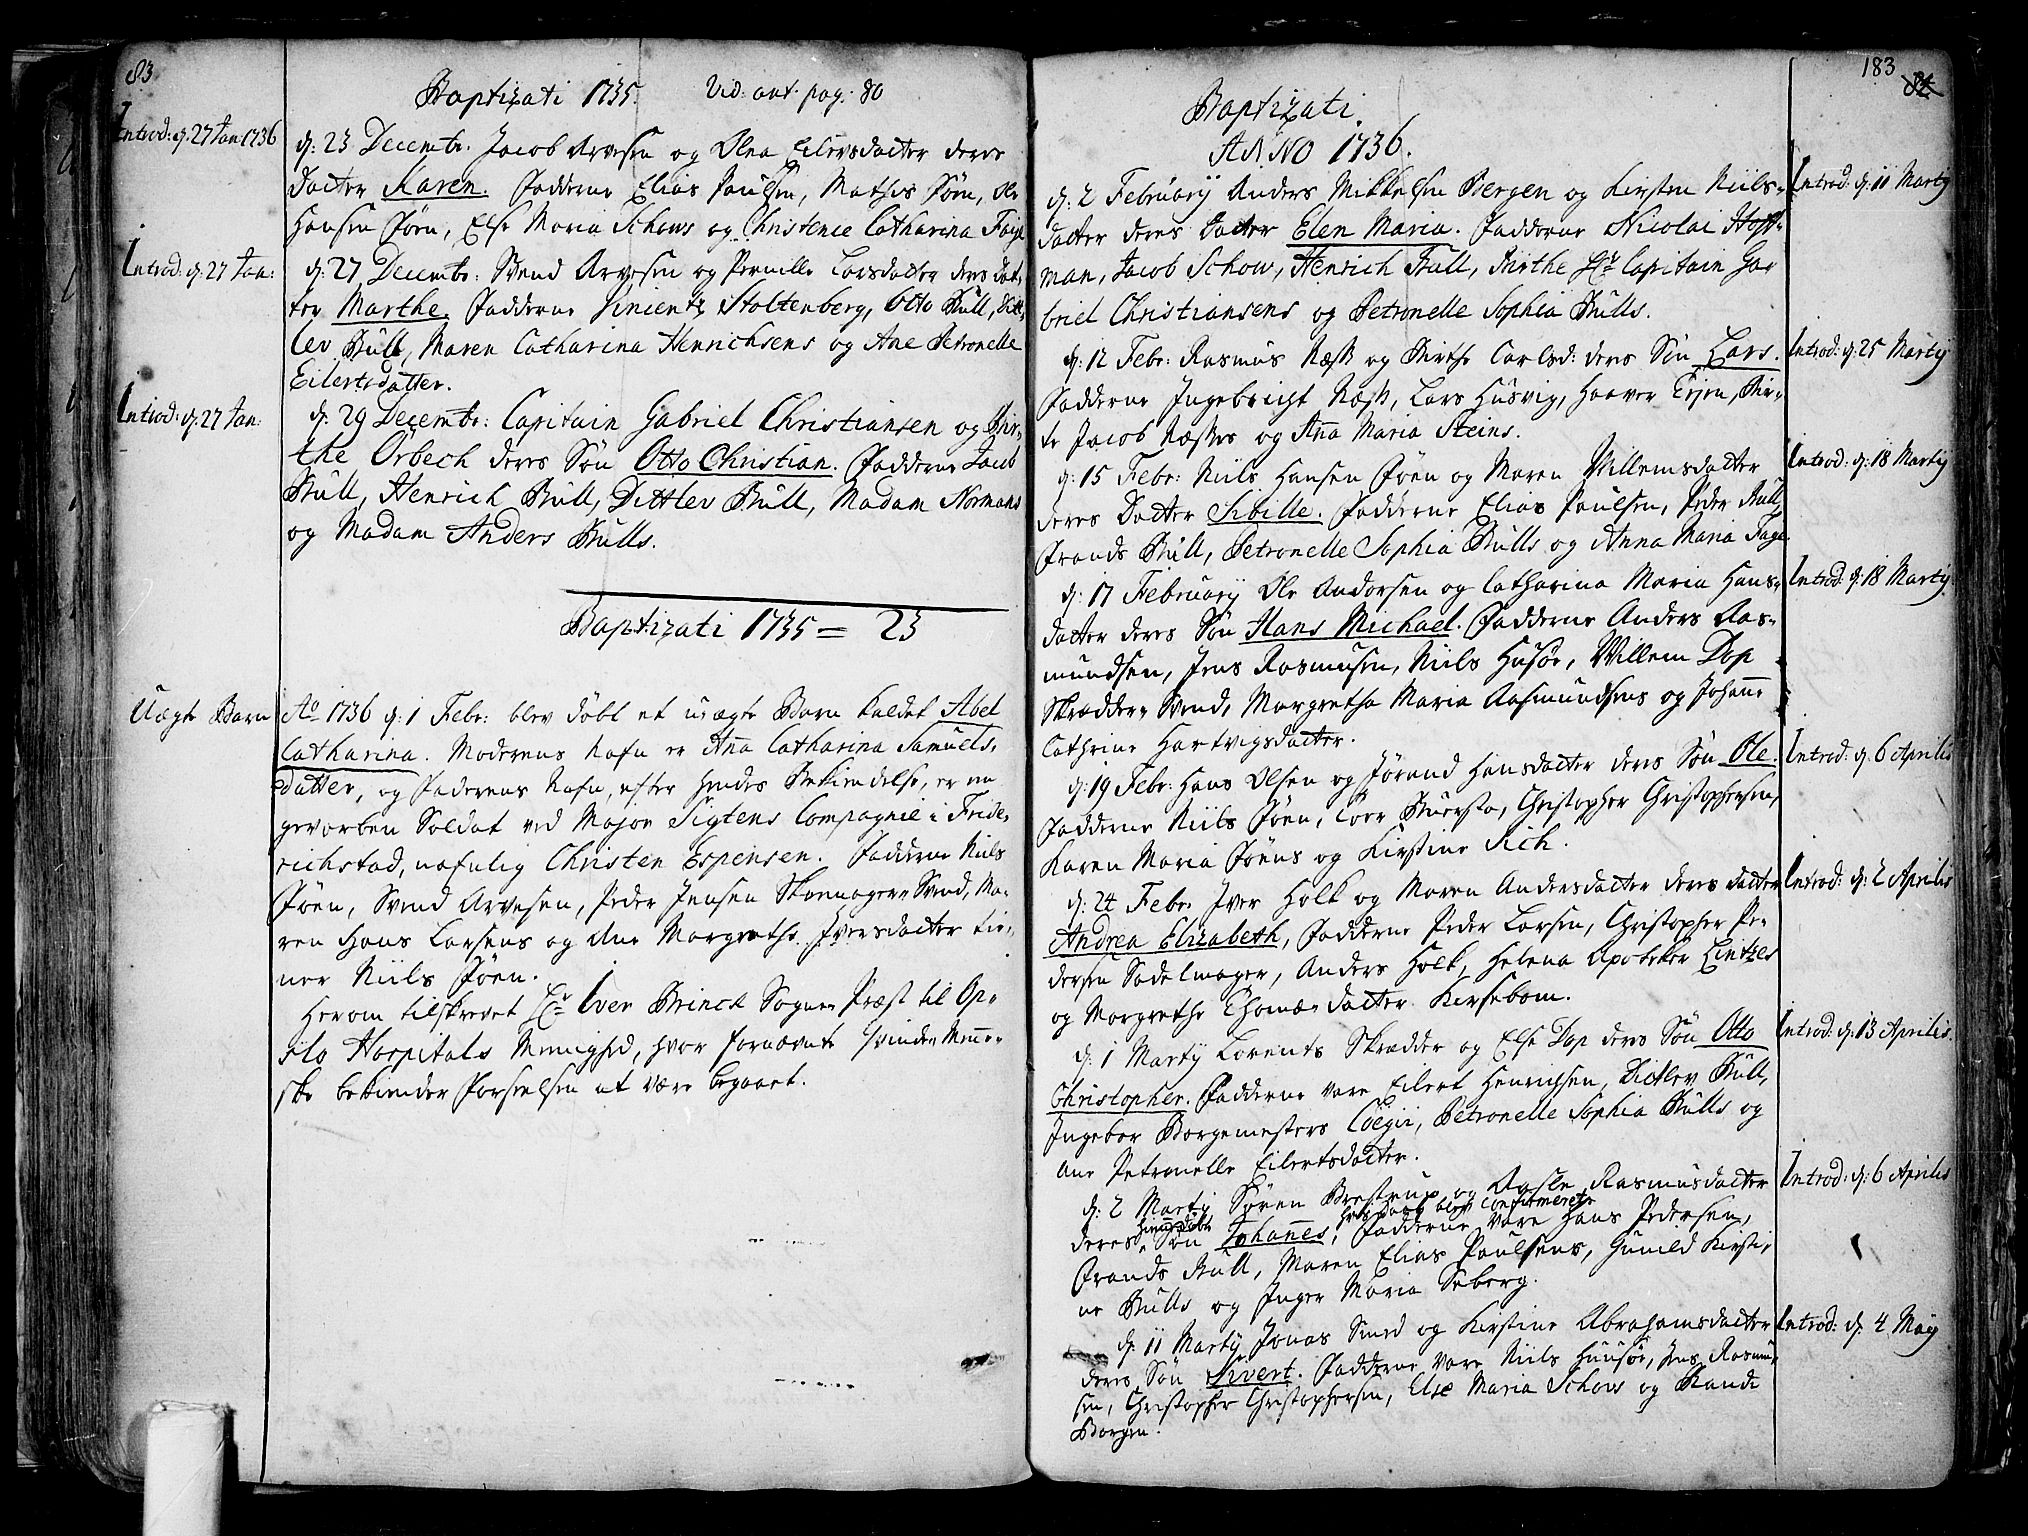 83
Baptizati 1735. Vid: ant. pag: 80
Introd: d. 27 Jan: 1736
d: 23 Decembr. Jacob Arvesen og Olea Eilersdatter deres
Datter Karen. Fadderne Elias Paulsen, Mathis Föen, Ole
Hansen Föen, Else Maria Schows og Christence Catharina Faye
Introd: d: 27 Jan:
d: 27 Decembr: Svend Arvesen og Pernille Larsdatter deres Dat-
ter Marthe. Fadderne Vincentz Stoltenberg, Otto Bull, Ditt-
lev Bull, Maren Catharina Henrichsens og Ane Petronelle
Eilertsdatter.
Introd: d. 27 Jan:
d. 29 Decembr: Capitain Gabriel Christiansen og Bir-
the Örbech deres Sön Otto Christian. Fadderne Jacob
Bull, Henrich Bull, Dittlev Bull, Madam Normans
og Madam Anders Bulls.
Baptizati 1735 = 23
Uægte Barn
Ao 1736 d: 1 Febr: blev döbt et uægte Barn kaldet Abel
Catharina. Moderens Nafn er Anna Catharina Samuels-
datter, og Faderens Nafn, efter hendes Bekiendelse, er en
gevorben Soldat ved Major Sigtens Compagnie i Fride-
richstad, nafnlig Christen Espensen. Fadderne Niels
Föen, Svend Arvesen, Peder Jensen Skomager Svend, Ma-
ren Hans Larsens og Ane Margrethe Iversdatter tie-
ner Niels Föen.
Herom tilskrevet Hr Iver Brinck Sogne Præst til Op-
slo Hospitals Menighed, hvor fornævnte Qvinde Menne-
ske bekiender Forseelsen at være begaaet.
183 84
Baptizati
ANNO 1736.
d: 2 February Anders Mikkelsen Bergen og Kirsten Niels-
datter deres Datter Elen Maria. Fadderne Nicolai Hoff-
man, Jacob Schow, Henrich Bull, Birthe Hr Capitain Ga-
briel Christiansens og Petronelle Sophia Bulls.
Introd: d: 11 Marty
d: 12 Febr: Rasmus Næss og Birthe Carlsd: deres Sön Lars.
Fadderne Ingebricht Næss, Lars Husvig, Haaver Eien, Bir-
te Jacob Næsses og Anna Maria Steins.
Introd: d: 25 Marty
d: 15 Febr: Niels Hansen Föen og Maren Willemsdatter
deres Datter Sibille. Fadderne Elias Paulsen, Peder Bull
Frands Bull, Petronelle Sophia Bulls og Anna Maria Faye
Introd: d: 18 Marty
d: 17 February Ole Andersen og Catharina Maria Hans-
datter deres Sön Hans Michael. Fadderne Anders Ras-
mundsen, Jens Rasmusen, Niels Husöe, Willem Dop
Skrædder Svend, Margretha Maria Aasmundsens og Johanne
Cathrine Hartvigsdatter.
Introd: d: 18 Marty.
d: 19 Febr: Hans Olsen og Jörand Hansdatter deres Sön Ole.
Fadderne Niels Föen, Tore Buerstø, Christopher Christophersen,
Karen Maria Föens og Kirstine Sich.
Introd: d. 6 Aprilis
d: 24 Febr: Iver Holk og Maren Andersdatter deres Datter
Andrea Elizabeth, Fadderne Peder Larsen, Christopher Pe-
dersen Sadelmager, Anders Holk, Helena Apoteker Lintzes
og Margrethe Thomædatter Kirsebom.
Introd: d: 2 Aprilis
d: 1 Marty Lorents Skrædder og Else Dop deres Sön Otto
Christopher. Fadderne vare Eilert Henrichsen, Ditlev Bull,
Ingebor Borgemesters Coegii, Petronelle Sophia Bulls og
Ane Petronelle Eilertsdatter.
Introd: d: 13 Aprilis.
d: 2 Marty Sören Brestrup og Aasle Rasmusdatter
deres hiemedöbt Sön Johannes, hvis Daab blev confirmeret, Fadderne vare Hans Pedersen,
Frands Bull, Maren Elias Paulsens, Gunild Kirsti-
ne Bulls og Inger Maria Seberg.
Introd: d: 6 Aprilis
d: 11 Marty Jonas Smed og Kirstine Abrahamsdatter
deres Sön Sivert. Fadderne vare Niels Huusöe, Jens Rasmu-
sen, Christopher Christophersen, Else Maria Schows og Randi
Borgen.
Introd: d. 4 May